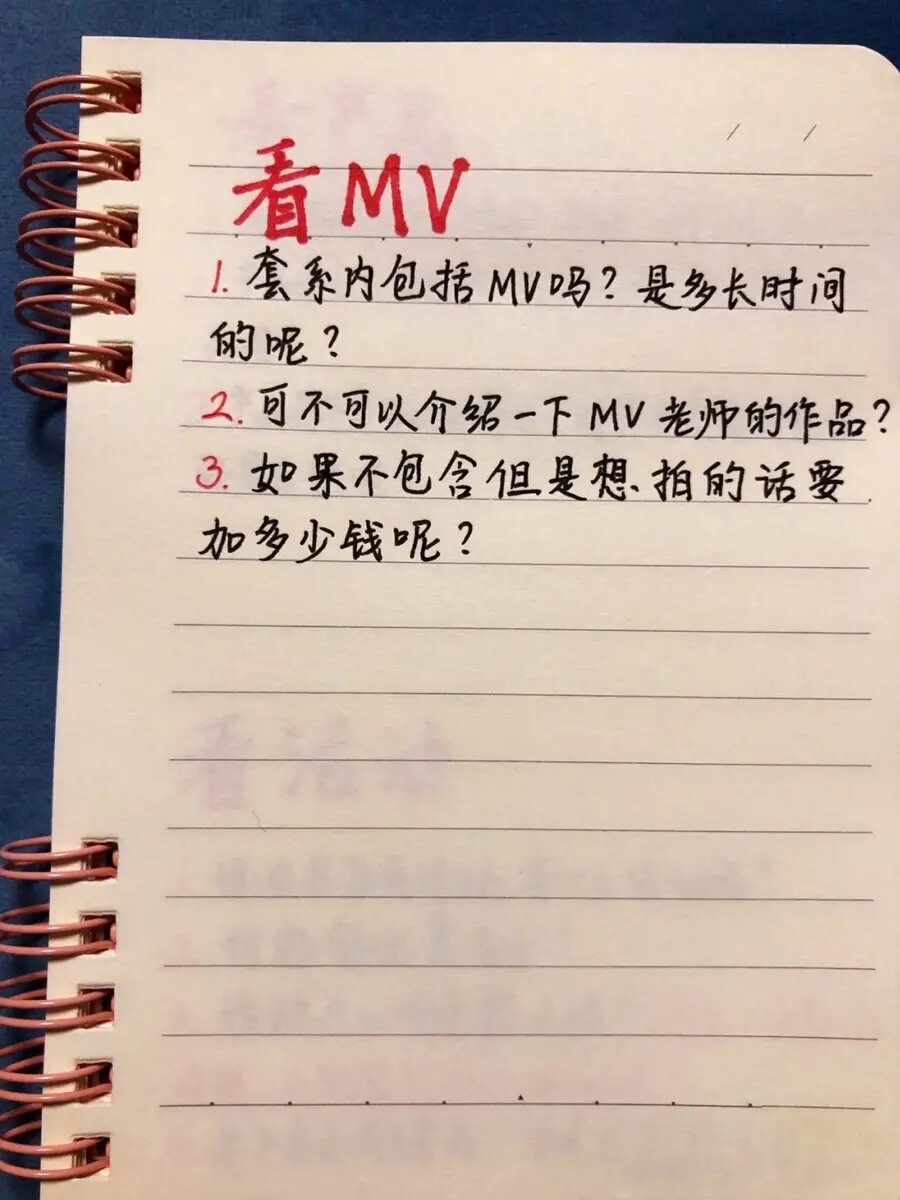 看MV
1. 套系内包括MV吗？是多长时间
的呢？
2. 可不可以介绍一下MV老师的作品？
3. 如果不包含但是想拍的话要
加多少钱呢？